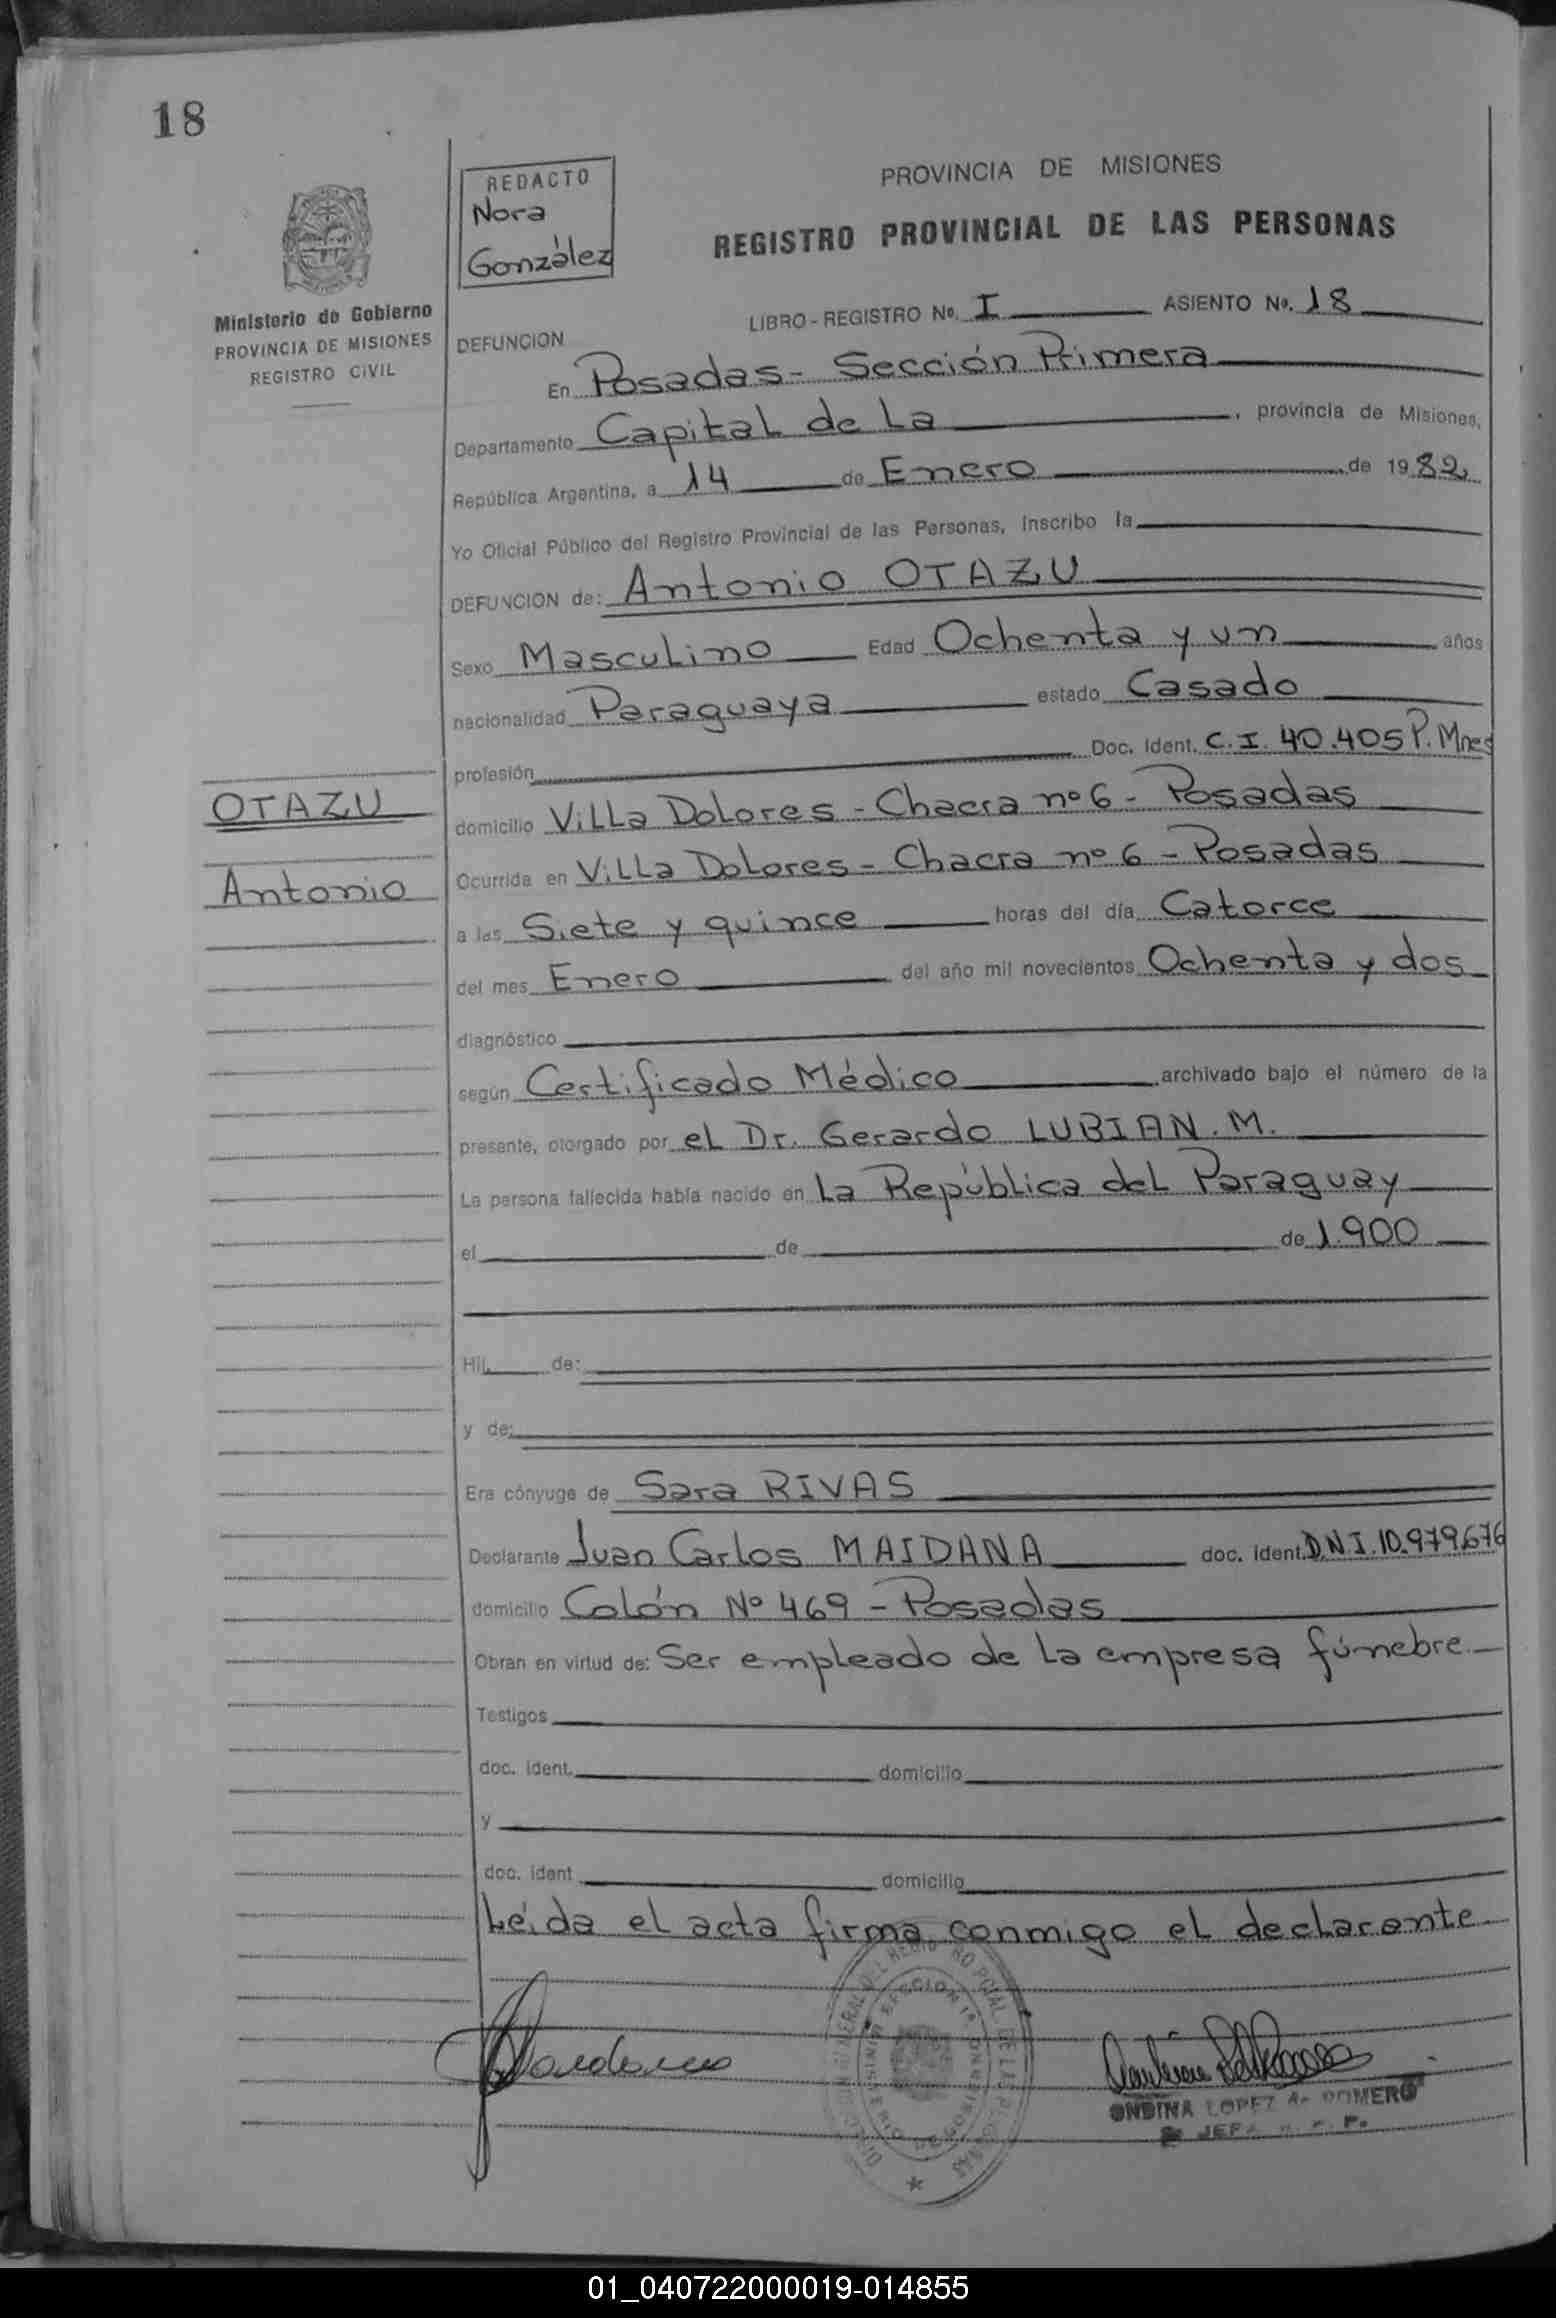 18
REDACTO
Nora
González
PROVINCIA DE MISIONES
REGISTRO PROVINCIAL DE LAS PERSONAS
Ministerio de Gobierno
PROVINCIA DE MISIONES
REGISTRO CIVIL
LIBRO - REGISTRO No. I ASIENTO No. 18
DEFUNCION
En Posadas - Sección Primera
Departamento Capital de La , provincia de Misiones,
República Argentina, a 14 de Enero de 1982
Yo Oficial Público del Registro Provincial de las Personas, inscribo la
DEFUNCION de: Antonio OTAZU
Sexo Masculino Edad Ochenta y un años
nacionalidad Paraguaya estado Casado
profesión Doc. Ident. C.I. 40.405 P. Mnes
OTAZU
Antonio
domicilio Villa Dolores - Chacra nº 6 - Posadas
Ocurrida en Villa Dolores - Chacra nº 6 - Posadas
a las Siete y quince horas del día Catorce
del mes Enero del año mil novecientos Ochenta y dos
diagnóstico
según Certificado Médico archivado bajo el número de la
presente, otorgado por el Dr. Gerardo LUBIAN. M.
La persona fallecida había nacido en La República del Paraguay
el de de 1.900
Hij de:
y de:
Era cónyuge de Sara RIVAS
Declarante Juan Carlos MAIDANA doc. ident. D.N.I. 10.979.676
domicilio Colón Nº 469 - Posadas
Obran en virtud de: Ser empleado de la empresa fúnebre.
Testigos
doc. ident. domicilio
y
doc. ident domicilio
Leída el acta firma conmigo el declarante
ONDINA LOPEZ A. ROMERO
JEFA
01_040722000019-014855